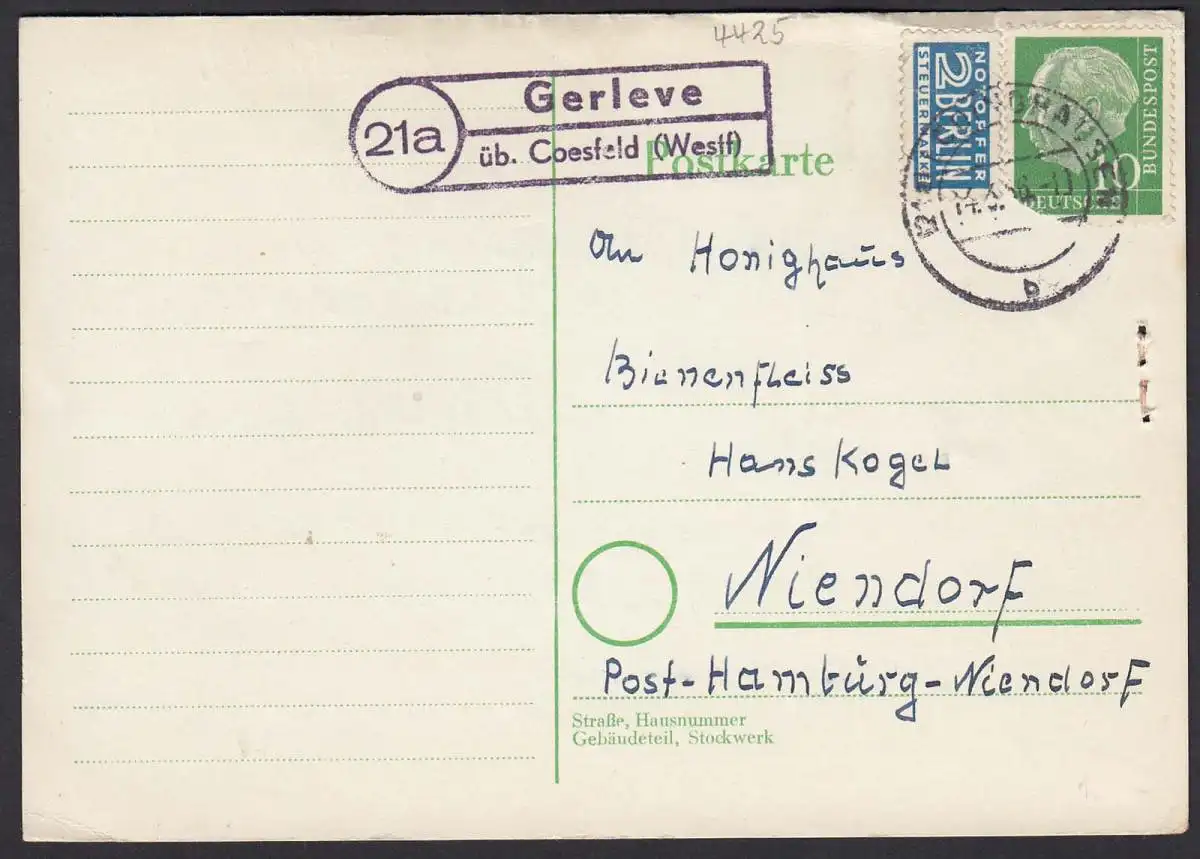 4425
21a
Gerleve
üb. Coesfeld (Westf)
Postkarte
NOTOPFER
2 BERLIN
STEUERMARKE
10
DEUTSCHE
BUNDESPOST
b
An Honighaus
Bienenfleiss
Hans Kogel
Niendorf
Post-Hamburg-Niendorf
Straße, Hausnummer
Gebäudeteil, Stockwerk